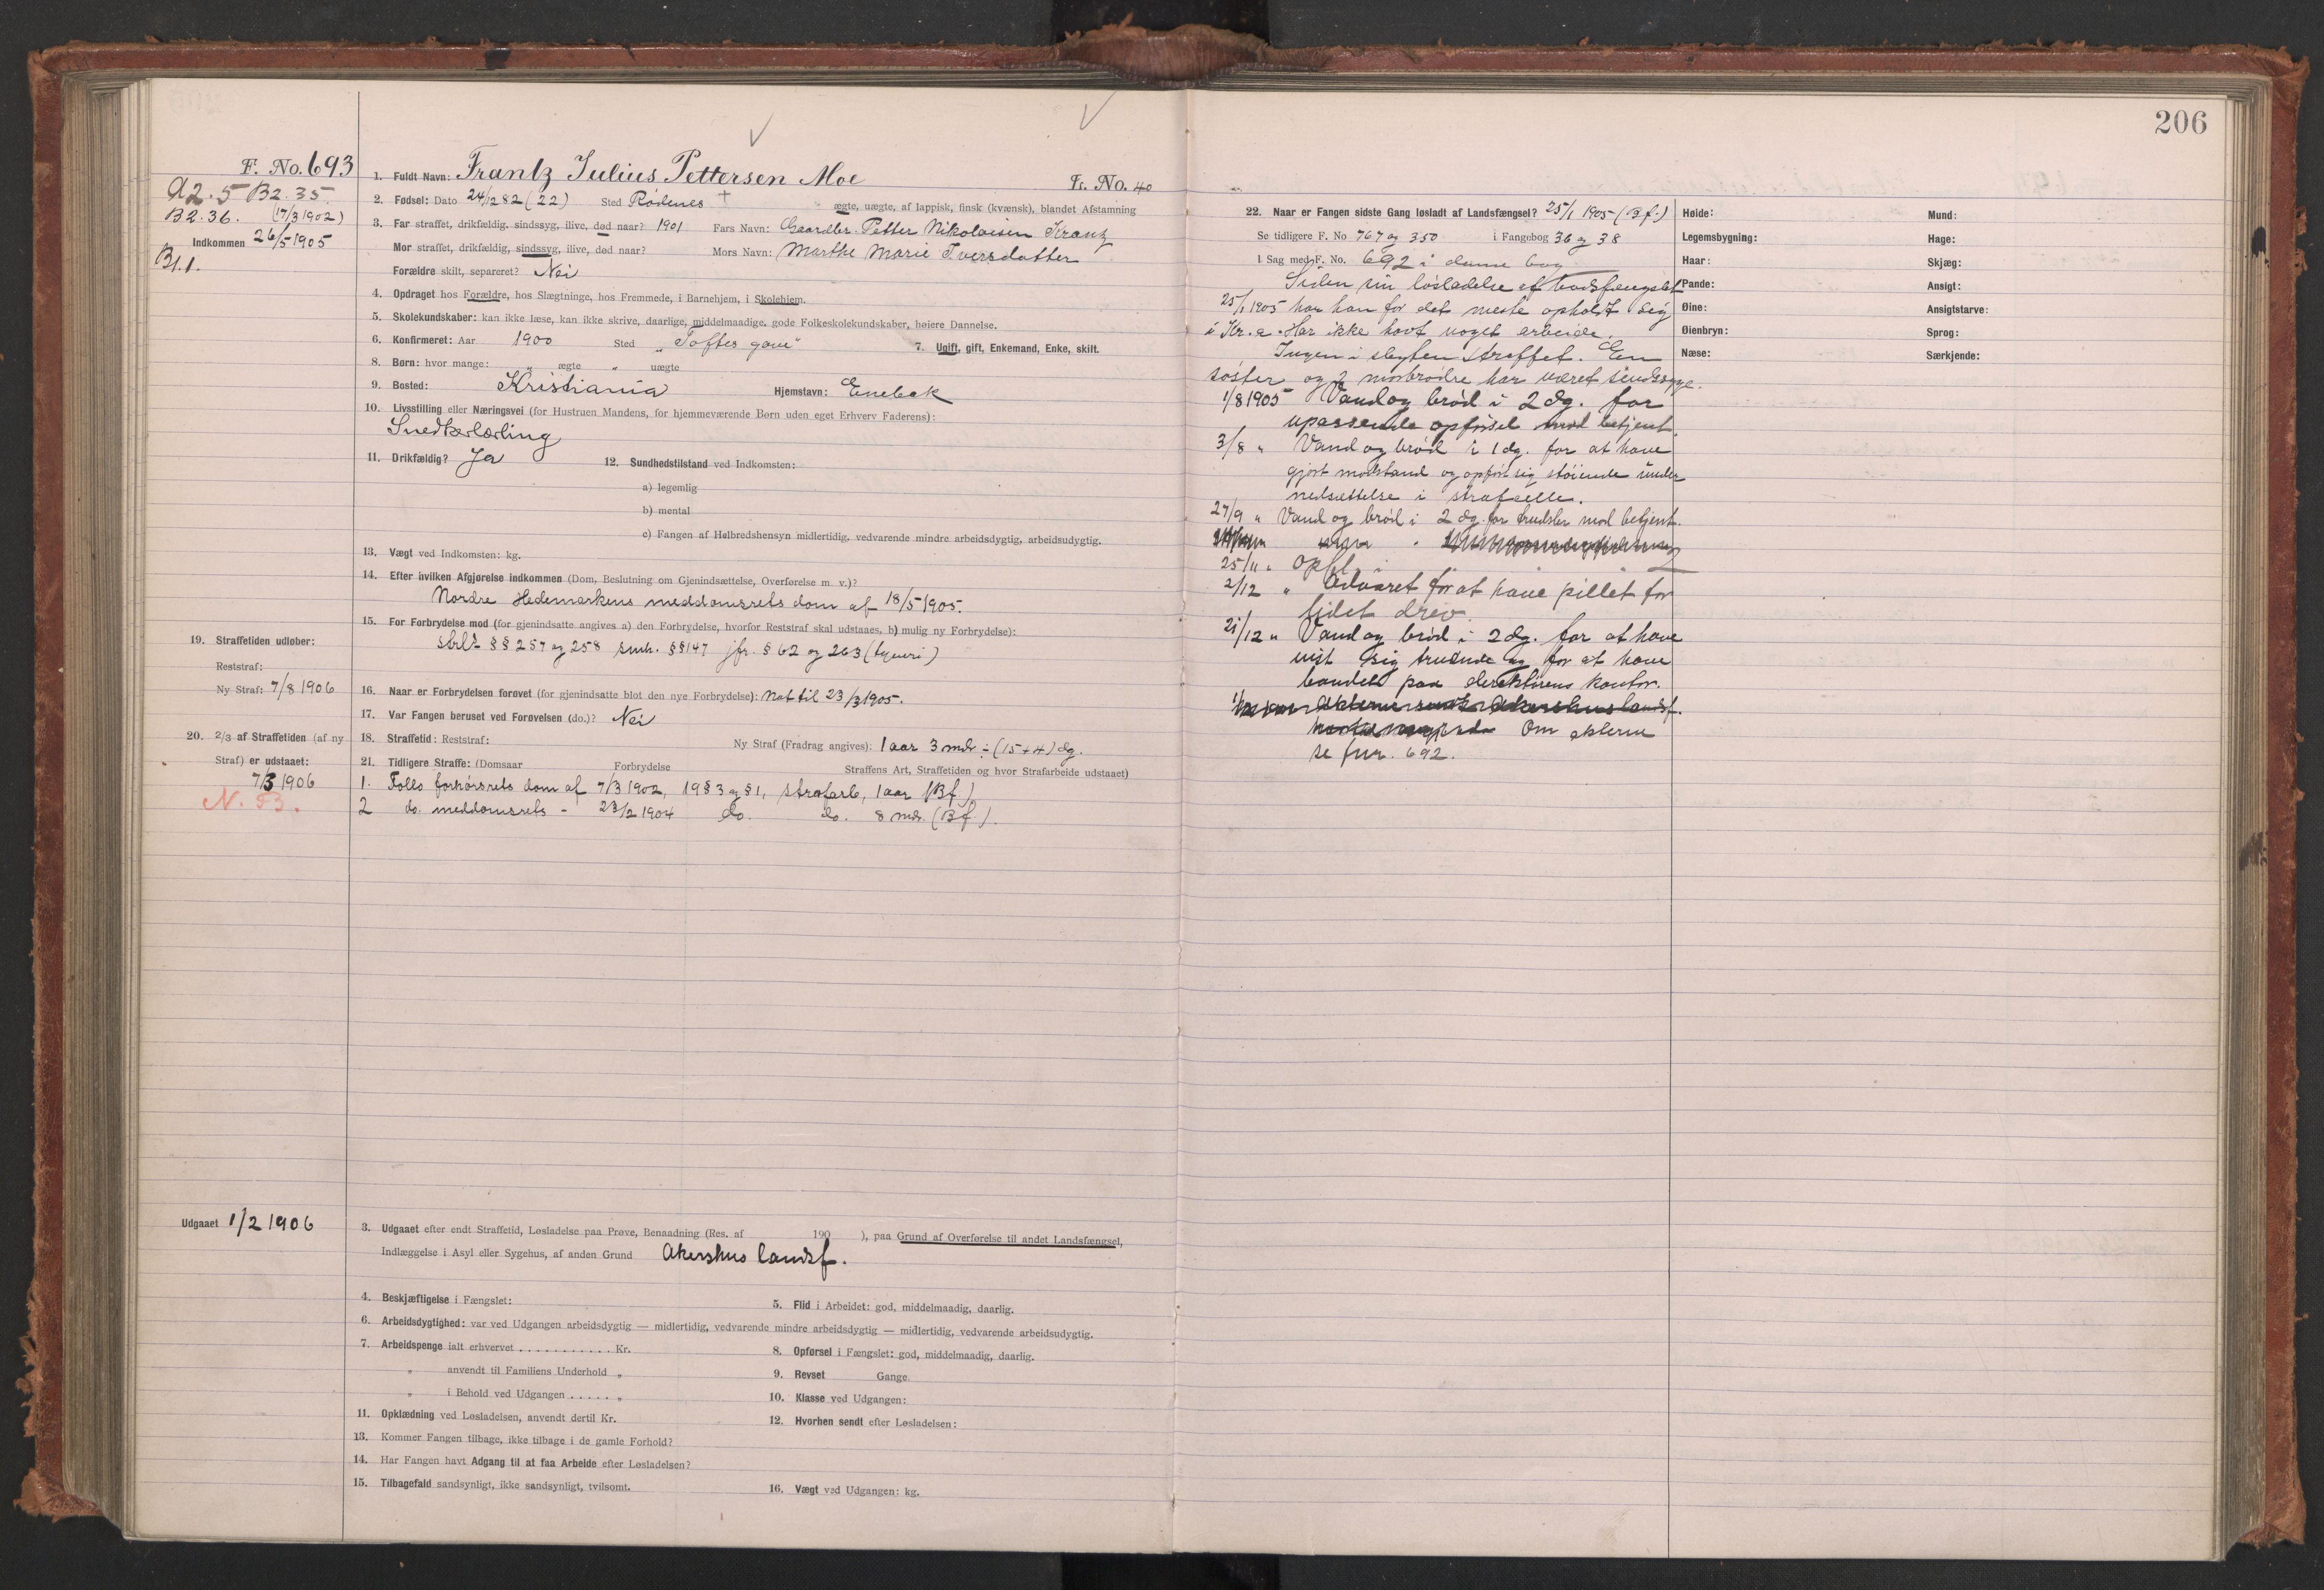 206
F. No. 693
A2.5 B2.35.
B2.36. (17/3 1902)
Indkommen 26/5 1905
B1.1.
1. Fuldt Navn: Frantz Julius Pettersen Moe Fr. No. 40
2. Fødsel: Dato 24/12 82 (22) Sted Rødenes † ægte, uægte, af lappisk, finsk (kvænsk), blandet Afstamning
3. Far straffet, drikfældig, sindssyg, ilive, død naar? 1901 Fars Navn: Gaardbr. Petter Nikolaisen Krantz
Mor straffet, drikfældig, sindssyg, ilive, død naar? Mors Navn: Marthe Marie Iversdatter
Forældre skilt, separeret? Nei
4. Opdraget hos Forældre, hos Slægtninge, hos Fremmede, i Barnehjem, i Skolehjem.
5. Skolekundskaber: kan ikke læse, kan ikke skrive, daarlige, middelmaadige, gode Folkeskolekundskaber, høiere Dannelse.
6. Konfirmeret: Aar 1900 Sted „Toftes gave" 7. Ugift, gift, Enkemand, Enke, skilt.
8. Børn: hvor mange: „ ægte „ uægte
9. Bosted: Kristiania Hjemstavn: Enebak
10. Livsstilling eller Næringsvei (for Hustruen Mandens, for hjemmeværende Børn uden eget Erhverv Faderens):
Snedkerlærling
11. Drikfældig? Ja 12. Sundhedstilstand ved Indkomsten:
a) legemlig
b) mental
c) Fangen af Helbredshensyn midlertidig, vedvarende mindre arbeidsdygtig, arbeidsudygtig.
13. Vægt ved Indkomsten: kg.
14. Efter hvilken Afgjørelse indkommen (Dom, Beslutning om Gjenindsættelse, Overførelse m. v.)?
Nordre Hedemarkens meddomsrets dom af 18/5 1905.
15. For Forbrydelse mod (for gjenindsatte angives a) den Forbrydelse, hvorfor Reststraf skal udstaaes, b) mulig ny Forbrydelse):
§§ 257 og 258 smh. §§ 147 jfr. § 62 og 263 (tyveri)
19. Straffetiden udløber:
Reststraf:
Ny Straf: 7/8 1906
16. Naar er Forbrydelsen forøvet (for gjenindsatte blot den nye Forbrydelse): Nat til 23/3 1905.
17. Var Fangen beruset ved Forøvelsen (do.)? Nei
20. 2/3 af Straffetiden (af ny
Straf) er udstaaet:
7/3 1906
N. 53.
18. Straffetid: Reststraf: Ny Straf (Fradrag angives): 1 aar 3 mdr ÷ (15+4) dg.
21. Tidligere Straffe: (Domsaar Forbrydelse Straffens Art, Straffetiden og hvor Strafarbeide udstaaet)
1. Follo forhørsrets dom af 7/3 1902, 19 § 3 og § 1, strafarb, 1 aar (Bf.)
2 do. meddomsrets - 23/2 1904 do. do. 8 mdr. (Bf.).
Udgaaet 1/2 1906
3. Udgaaet efter endt Straffetid, Løsladelse paa Prøve, Benaadning (Res. af 190 ), paa Grund af Overførelse til andet Landsfængsel,
Indlæggelse i Asyl eller Sygehus, af anden Grund Akershus landsf.
4. Beskjæftigelse i Fængslet: 5. Flid i Arbeidet: god, middelmaadig, daarlig.
6. Arbeidsdygtighed: var ved Udgangen arbeidsdygtig — midlertidig, vedvarende mindre arbeidsdygtig — midlertidig, vedvarende arbeidsudygtig.
7. Arbeidspenge ialt erhvervet . . . . . . . . . . . Kr. 8. Opførsel i Fængslet: god, middelmaadig, daarlig.
„ anvendt til Familiens Underhold „ 9. Revset Gange
„ i Behold ved Udgangen . . . . . „ 10. Klasse ved Udgangen:
11. Opklædning ved Løsladelsen, anvendt dertil Kr. 12. Hvorhen sendt efter Løsladelsen:
13. Kommer Fangen tilbage, ikke tilbage i de gamle Forhold?
14. Har Fangen havt Adgang til at faa Arbeide efter Løsladelsen?
15. Tilbagefald sandsynligt, ikke sandsynligt, tvilsomt. 16. Vægt ved Udgangen: kg.
22. Naar er Fangen sidste Gang løsladt af Landsfængsel? 25/1 1905 (Bf.)
Se tidligere F. No 767 og 350 i Fangebog 36 og 38
I Sag med F. No. 692 i denne bog
Siden sin løsladelse af bodsfængslet
25/1 1905 har han for det meste opholdt sig
i Kr.a. Har ikke havt noget arbeide.
Ingen i slegten straffet. En
søster og 2 morbrødre har været sindssyge.
1/8 1905 Vand og brød i 2 dg. for
upassende opførsel mod betjent.
3/8 „ Vand og brød i 1 dg. for at have
gjort modstand og opført sig støiende under
nedsættelse i strafcelle.
27/9 „ Vand og brød i 2 dg. for trudsler mod betjent.
25/11 „ Opfl.
2/12 „ Advaret for at have pillet for
lidet drev.
21/12 „ Vand og brød i 2 dg. for at have
vist sig truende og for at have
bandet paa direktørens kontor.
Akterne sendt Akershus landsf.
Om akterne
se fnr. 692.
Høide: Mund:
Legemsbygning: Hage:
Haar: Skjæg:
Pande: Ansigt:
Øine: Ansigtsfarve:
Øienbryn: Sprog:
Næse: Særkjende: